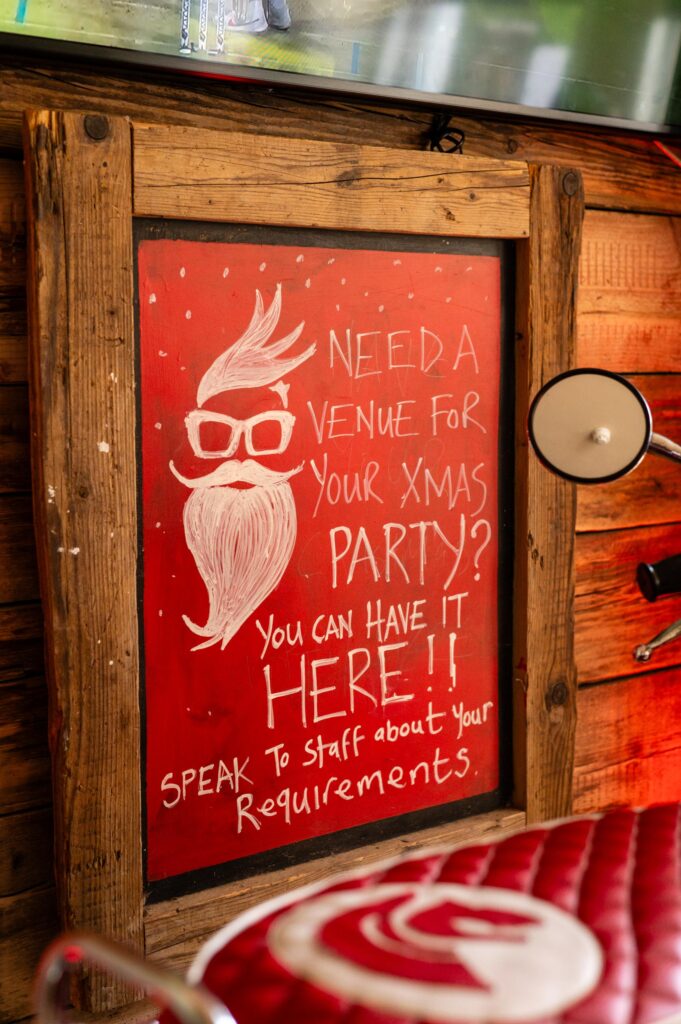 NEED A
VENUE FOR
YOUR XMAS
PARTY?
YOU CAN HAVE IT
HERE!!
SPEAK To Staff about Your
Requirements.